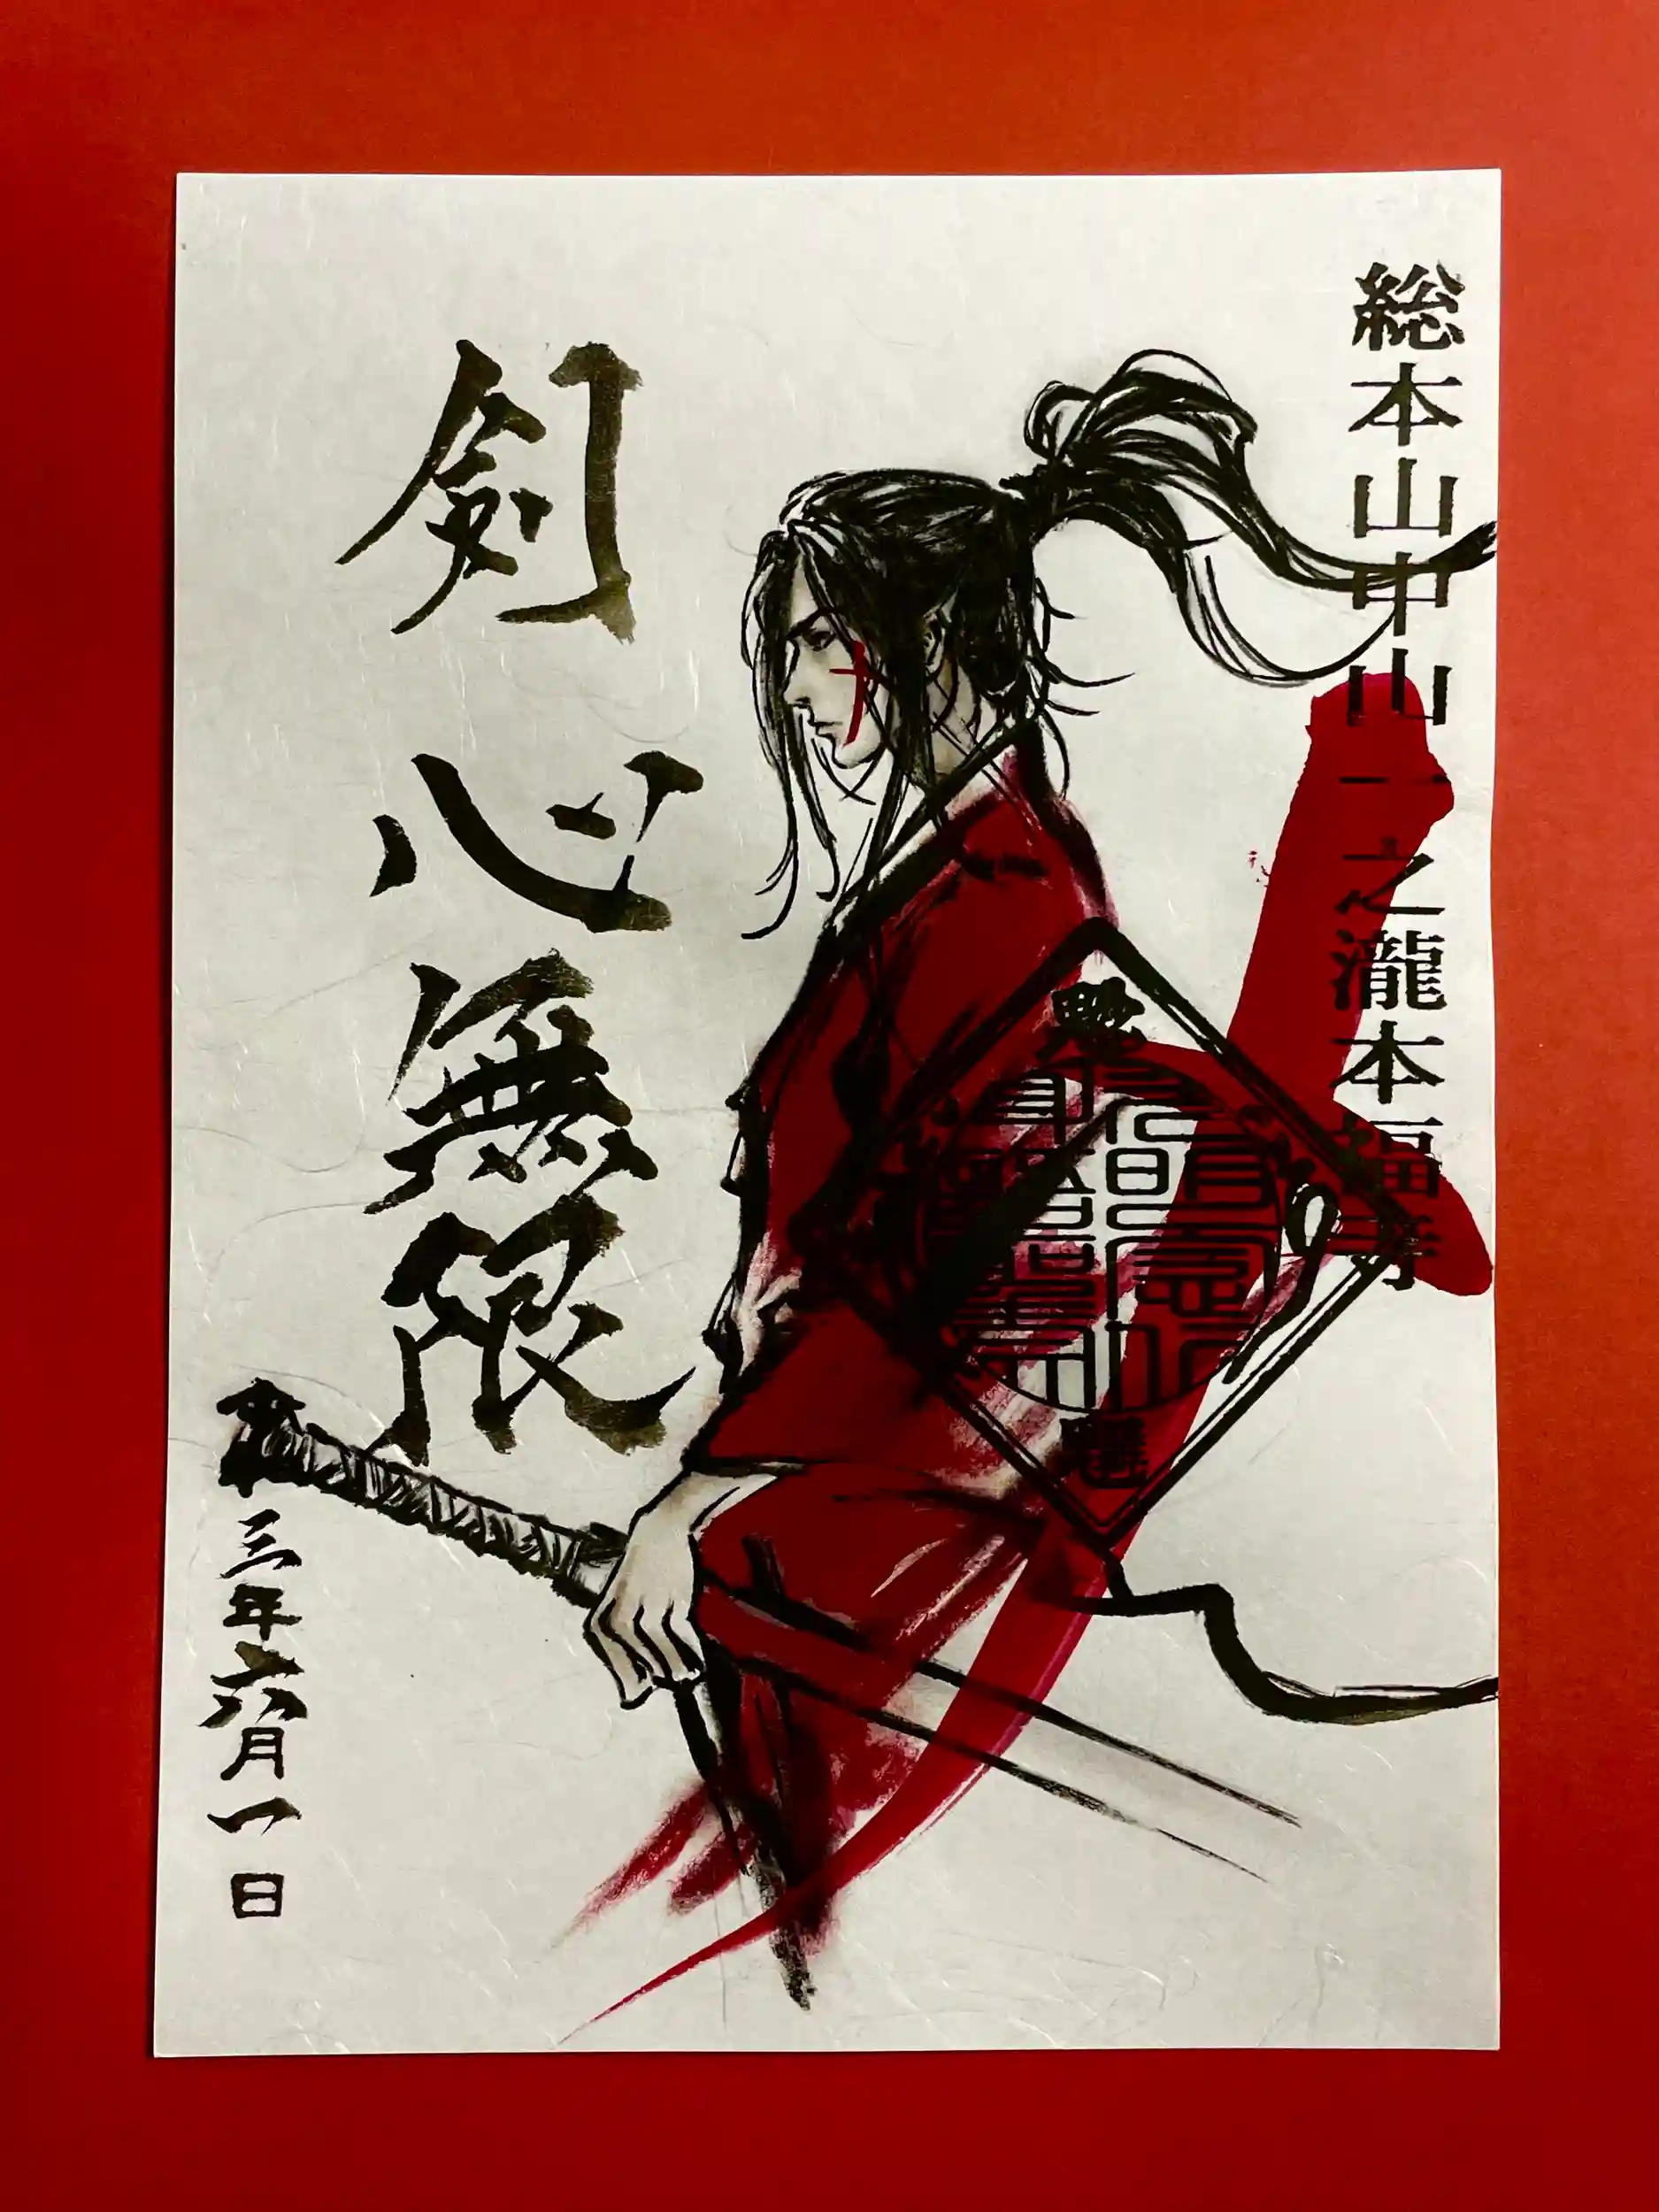 総本山中山一之瀧本福寺
剣心無限
令和三年六月一日